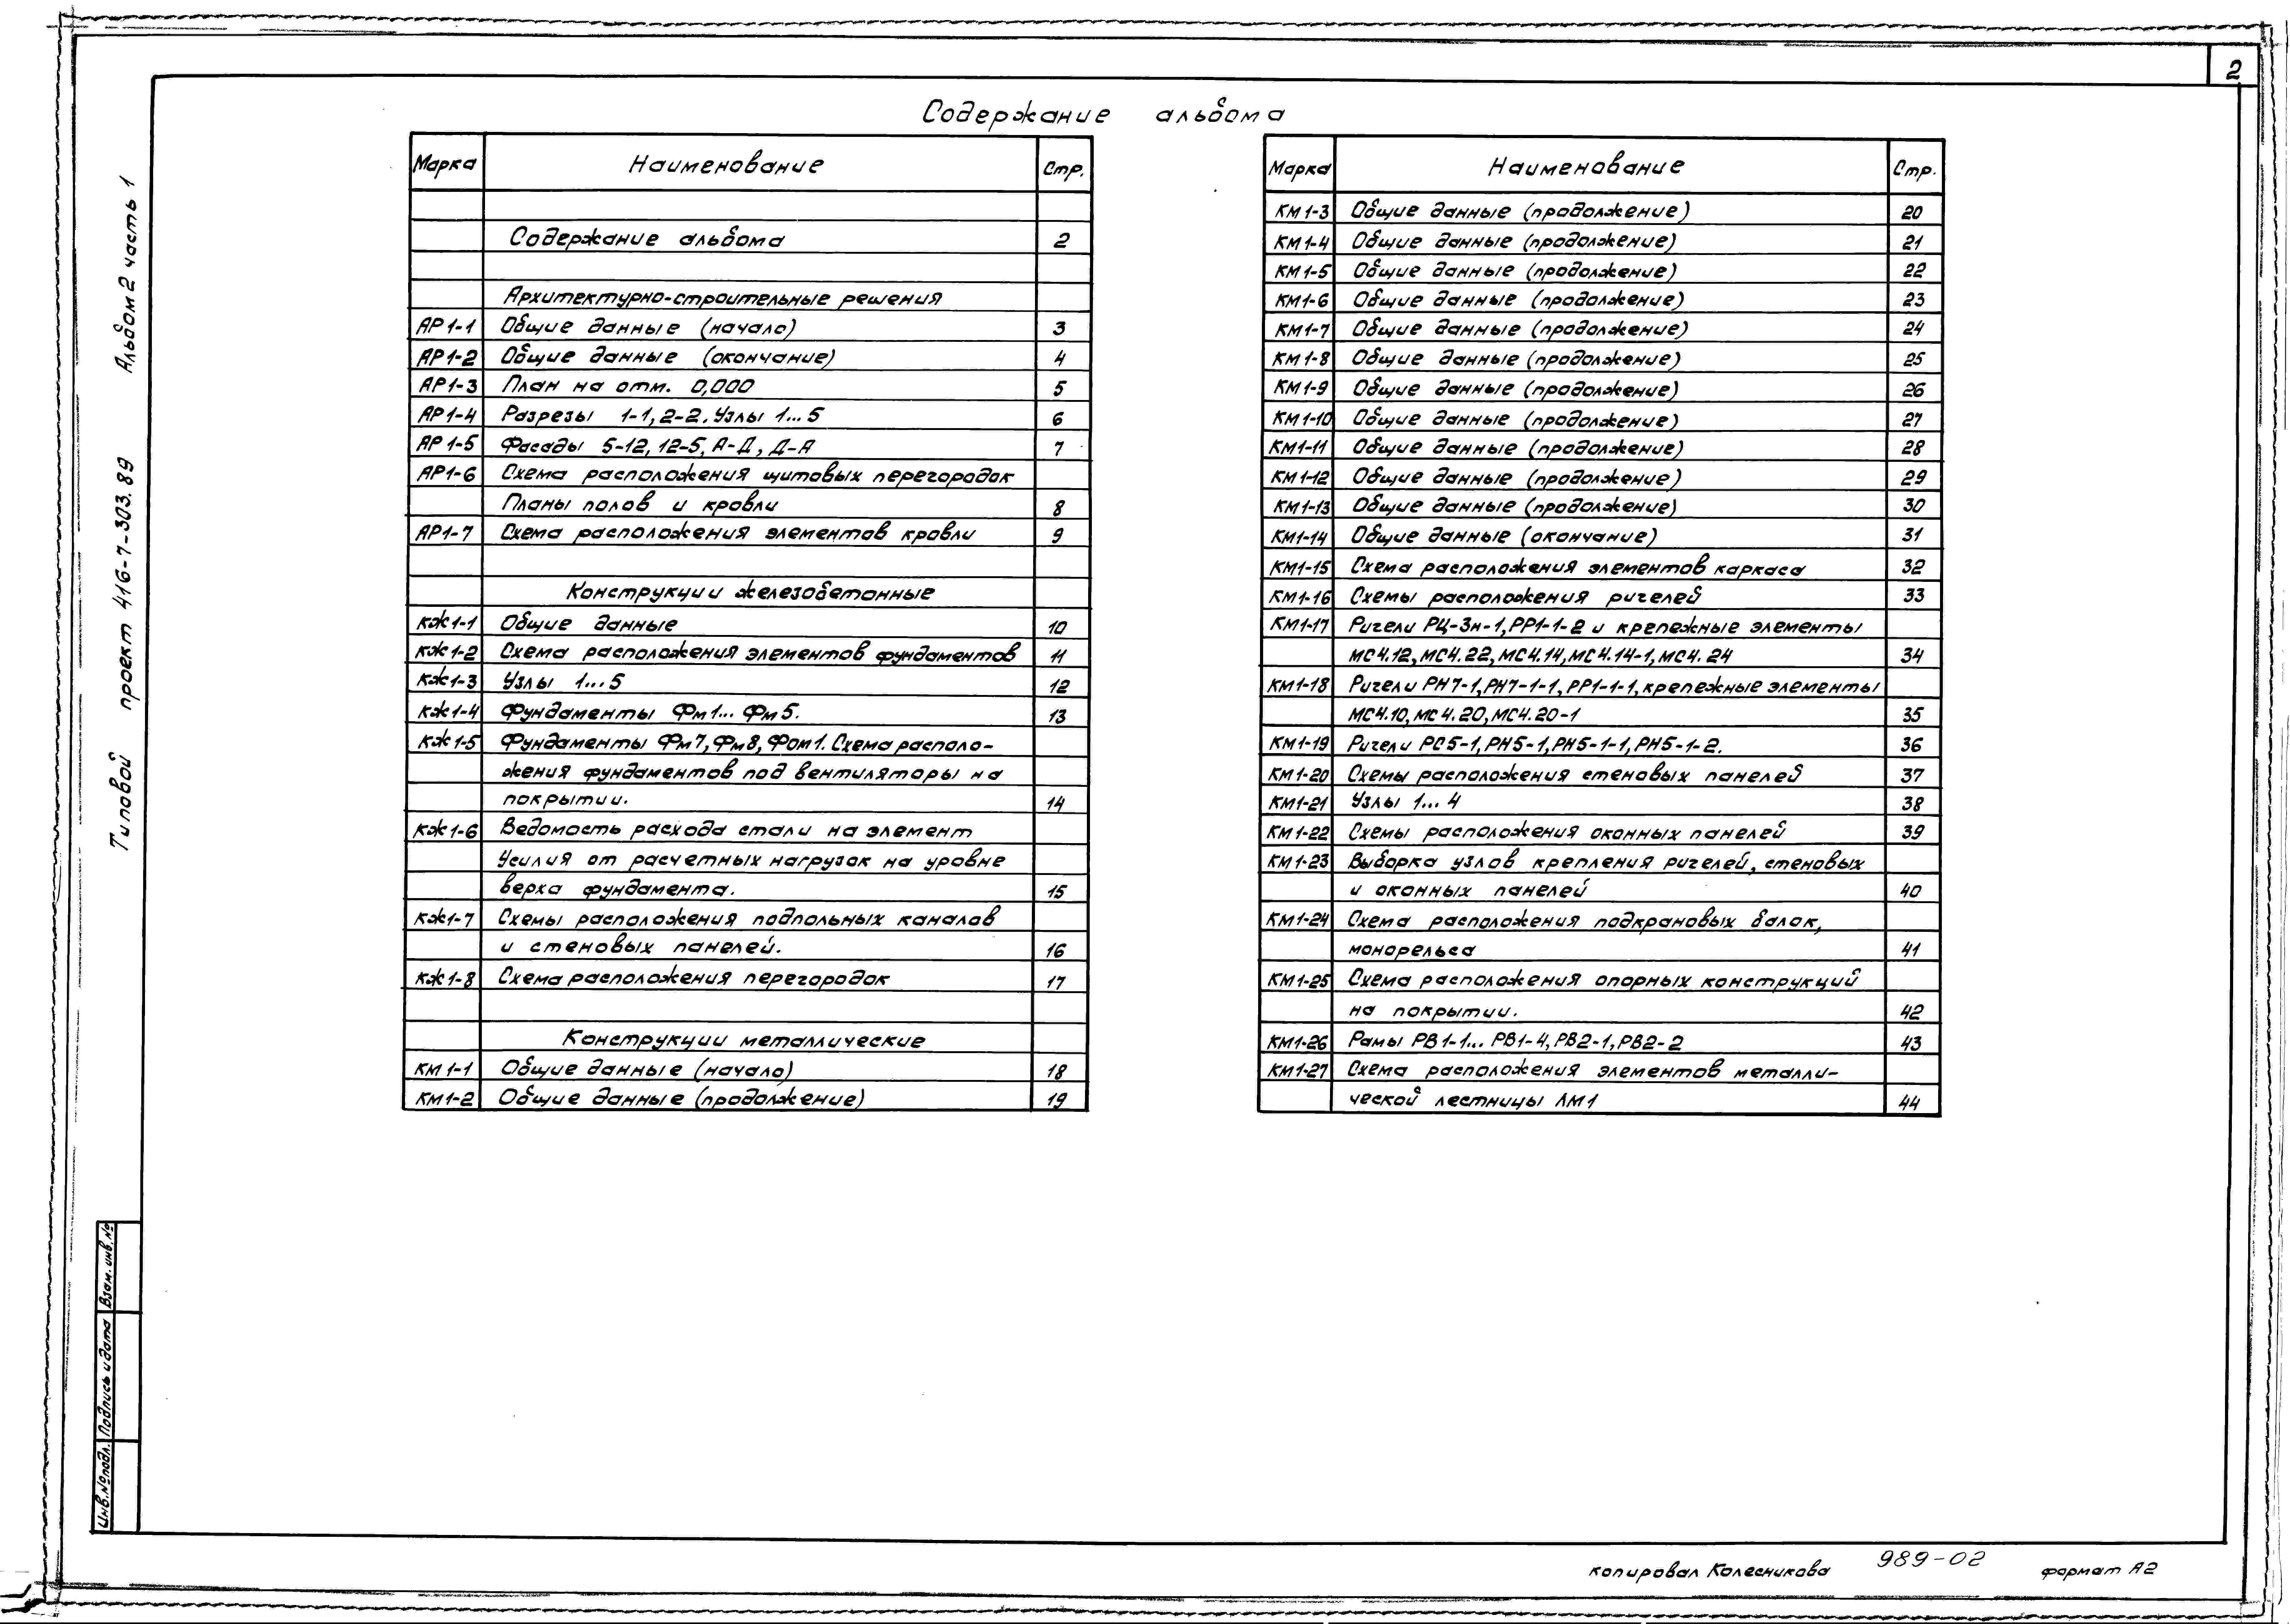 2
Содержание альбома
Марка Наименование Стр.
Содержание альбома 2
Архитектурно-строительные решения
АР1-1 Общие данные (начало) 3
АР1-2 Общие данные (окончание) 4
АР1-3 План на отм. 0,000 5
АР1-4 Разрезы 1-1, 2-2. Узлы 1...5 6
АР1-5 Фасады 5-12, 12-5, А-Д, Д-А 7
АР1-6 Схема расположения щитовых перегородок
Планы полов и кровли 8
АР1-7 Схема расположения элементов кровли 9
Конструкции железобетонные
КЖ1-1 Общие данные 10
КЖ1-2 Схема расположения элементов фундаментов 11
КЖ1-3 Узлы 1...5 12
КЖ1-4 Фундаменты Фм1... Фм5. 13
КЖ1-5 Фундаменты Фм7, Фм8, Фом1. Схема располо-
жения фундаментов под вентиляторы на
покрытии. 14
КЖ1-6 Ведомость расхода стали на элемент
Усилия от расчетных нагрузок на уровне
верха фундамента. 15
КЖ1-7 Схемы расположения подпольных каналов
и стеновых панелей. 16
КЖ1-8 Схема расположения перегородок 17
Конструкции металлические
КМ1-1 Общие данные (начало) 18
КМ1-2 Общие данные (продолжение) 19
Марка Наименование Стр.
КМ1-3 Общие данные (продолжение) 20
КМ1-4 Общие данные (продолжение) 21
КМ1-5 Общие данные (продолжение) 22
КМ1-6 Общие данные (продолжение) 23
КМ1-7 Общие данные (продолжение) 24
КМ1-8 Общие данные (продолжение) 25
КМ1-9 Общие данные (продолжение) 26
КМ1-10 Общие данные (продолжение) 27
КМ1-11 Общие данные (продолжение) 28
КМ1-12 Общие данные (продолжение) 29
КМ1-13 Общие данные (продолжение) 30
КМ1-14 Общие данные (окончание) 31
КМ1-15 Схема расположения элементов каркаса 32
КМ1-16 Схемы расположения ригелей 33
КМ1-17 Ригели РЦ-3н-1, РР1-1-2 и крепежные элементы
МС4.12, МС4.22, МС4.14, МС4.14-1, МС4.24 34
КМ1-18 Ригели РН7-1, РН7-1-1, РР1-1-1, крепежные элементы
МС4.10, МС4.20, МС4.20-1 35
КМ1-19 Ригели РС5-1, РН5-1, РН5-1-1, РН5-1-2. 36
КМ1-20 Схемы расположения стеновых панелей 37
КМ1-21 Узлы 1...4 38
КМ1-22 Схемы расположения оконных панелей 39
КМ1-23 Выборка узлов крепления ригелей, стеновых
и оконных панелей 40
КМ1-24 Схема расположения подкрановых балок,
монорельса 41
КМ1-25 Схема расположения опорных конструкций
на покрытии. 42
КМ1-26 Рамы РВ1-1... РВ1-4, РВ2-1, РВ2-2 43
КМ1-27 Схема расположения элементов металли-
ческой лестницы ЛМ1 44
Типовой проект 416-7-303.89 Альбом 2 часть 1
Инв.№подл. Подпись и дата Взам. инв. №
копировал Колесникова 989-02 формат А2